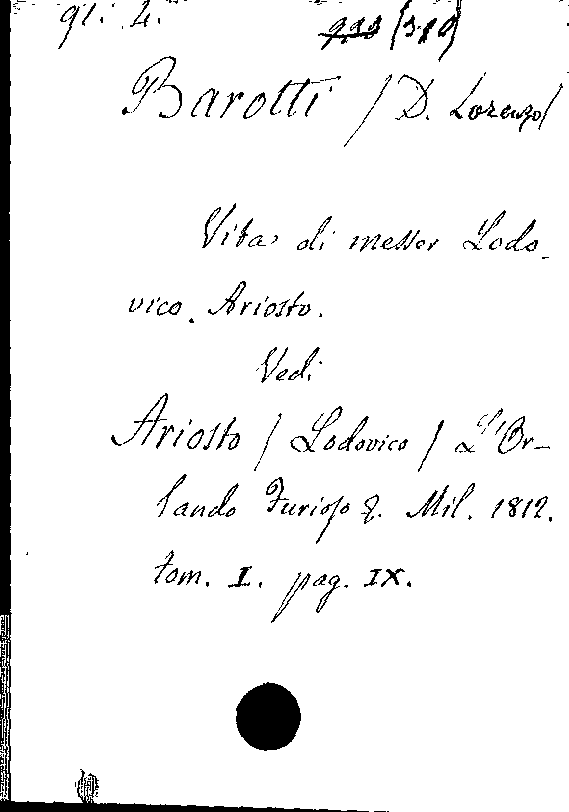 gl. 4. 933 (319)
Barotti / D. Lorenzo/
Vita di messer Lodo-
vico Ariosto.
Vedi
Ariosto / Lodovico / L'Or-
lando Furioso &. Mil. 1812.
tom. I. pag. IX.